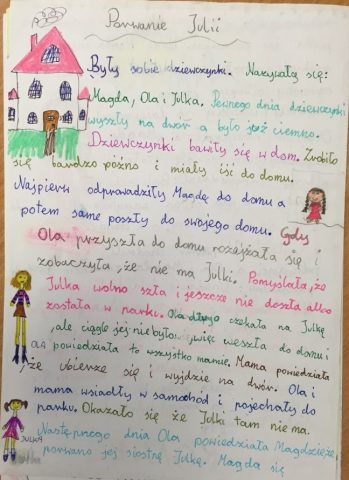 Porwanie Julii
Były sobie dziewczynki. Nazywały się:
Magda, Ola i Julka. Pewnego dnia dziewczynki
wyszły na dwór a było już ciemno.
Dziewczynki bawiły się w dom. Zrobiło
się bardzo późno i miały iść do domu.
Najpierw odprowadziły Magdę do domu a
potem same poszły do swojego domu. Gdy
Ola przyszła do domu rozejżała się i
zobaczyła, że nie ma Julki. Pomyślała, że
Julka wolno szła i jeszcze nie doszła albo
została w parku. Ola długo czekała na Julkę
, ale ciągle jej nie było. więc weszła do domu i
powiedziała to wszystko mamie. Mama powiedziała
, że ubierze się i wyjdzie na dwór. Ola i
mama wsiadły w samochód i pojechały do
parku. Okazało się że Julki tam nie ma.
Następnego dnia Ola powiedziała Magdzie, że
JULKA porwano jej siostrę Julkę. Magda się